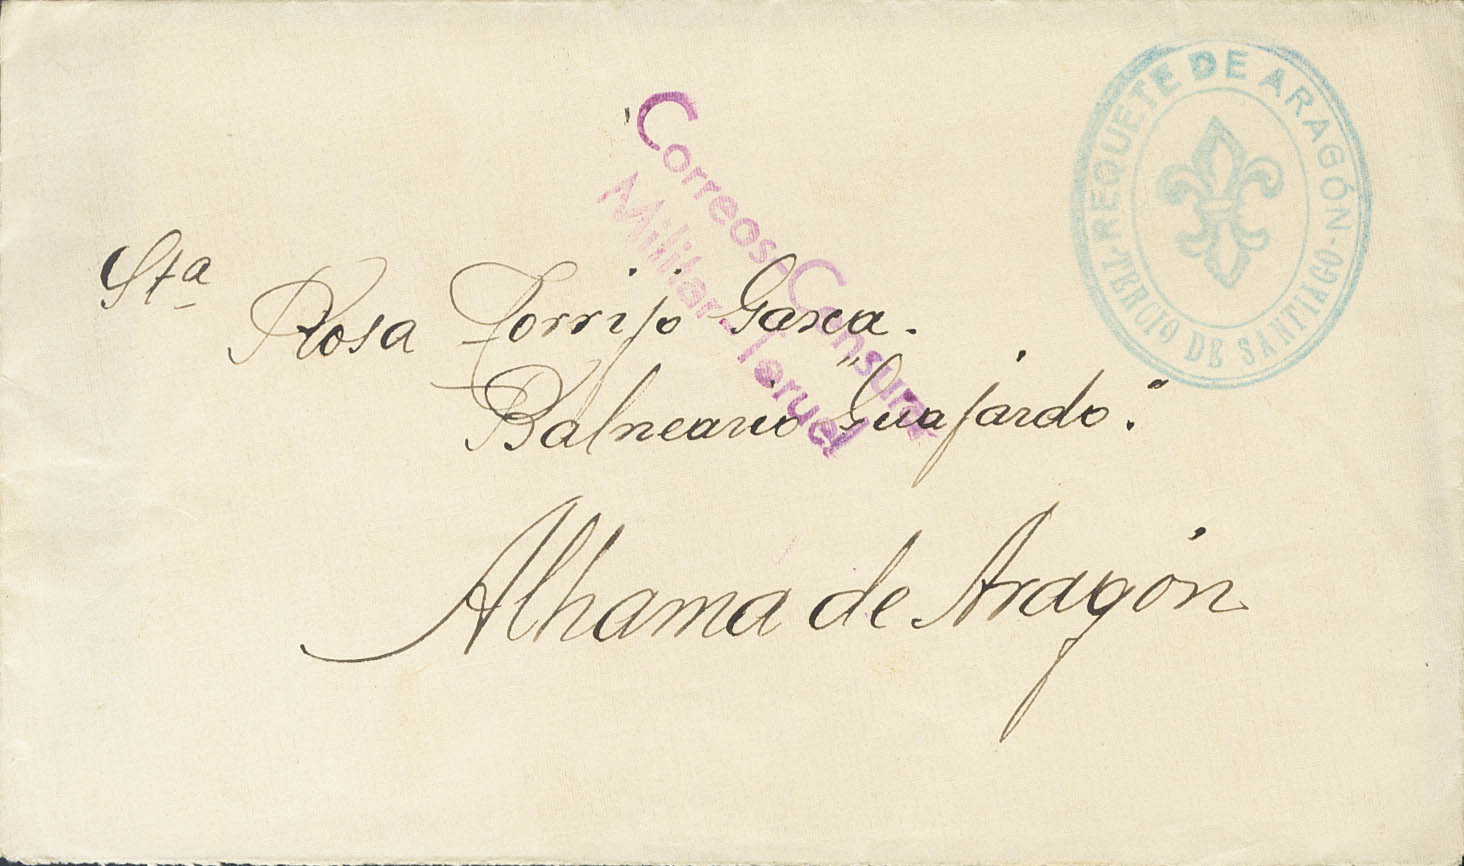 REQUETE DE ARAGÓN
-TERCIO DE SANTIAGO-
Correos-Censura
Militar-Teruel
Sta
Rosa Torrijo Garcia.
Balneario "Guajardo".
Alhama de Aragón